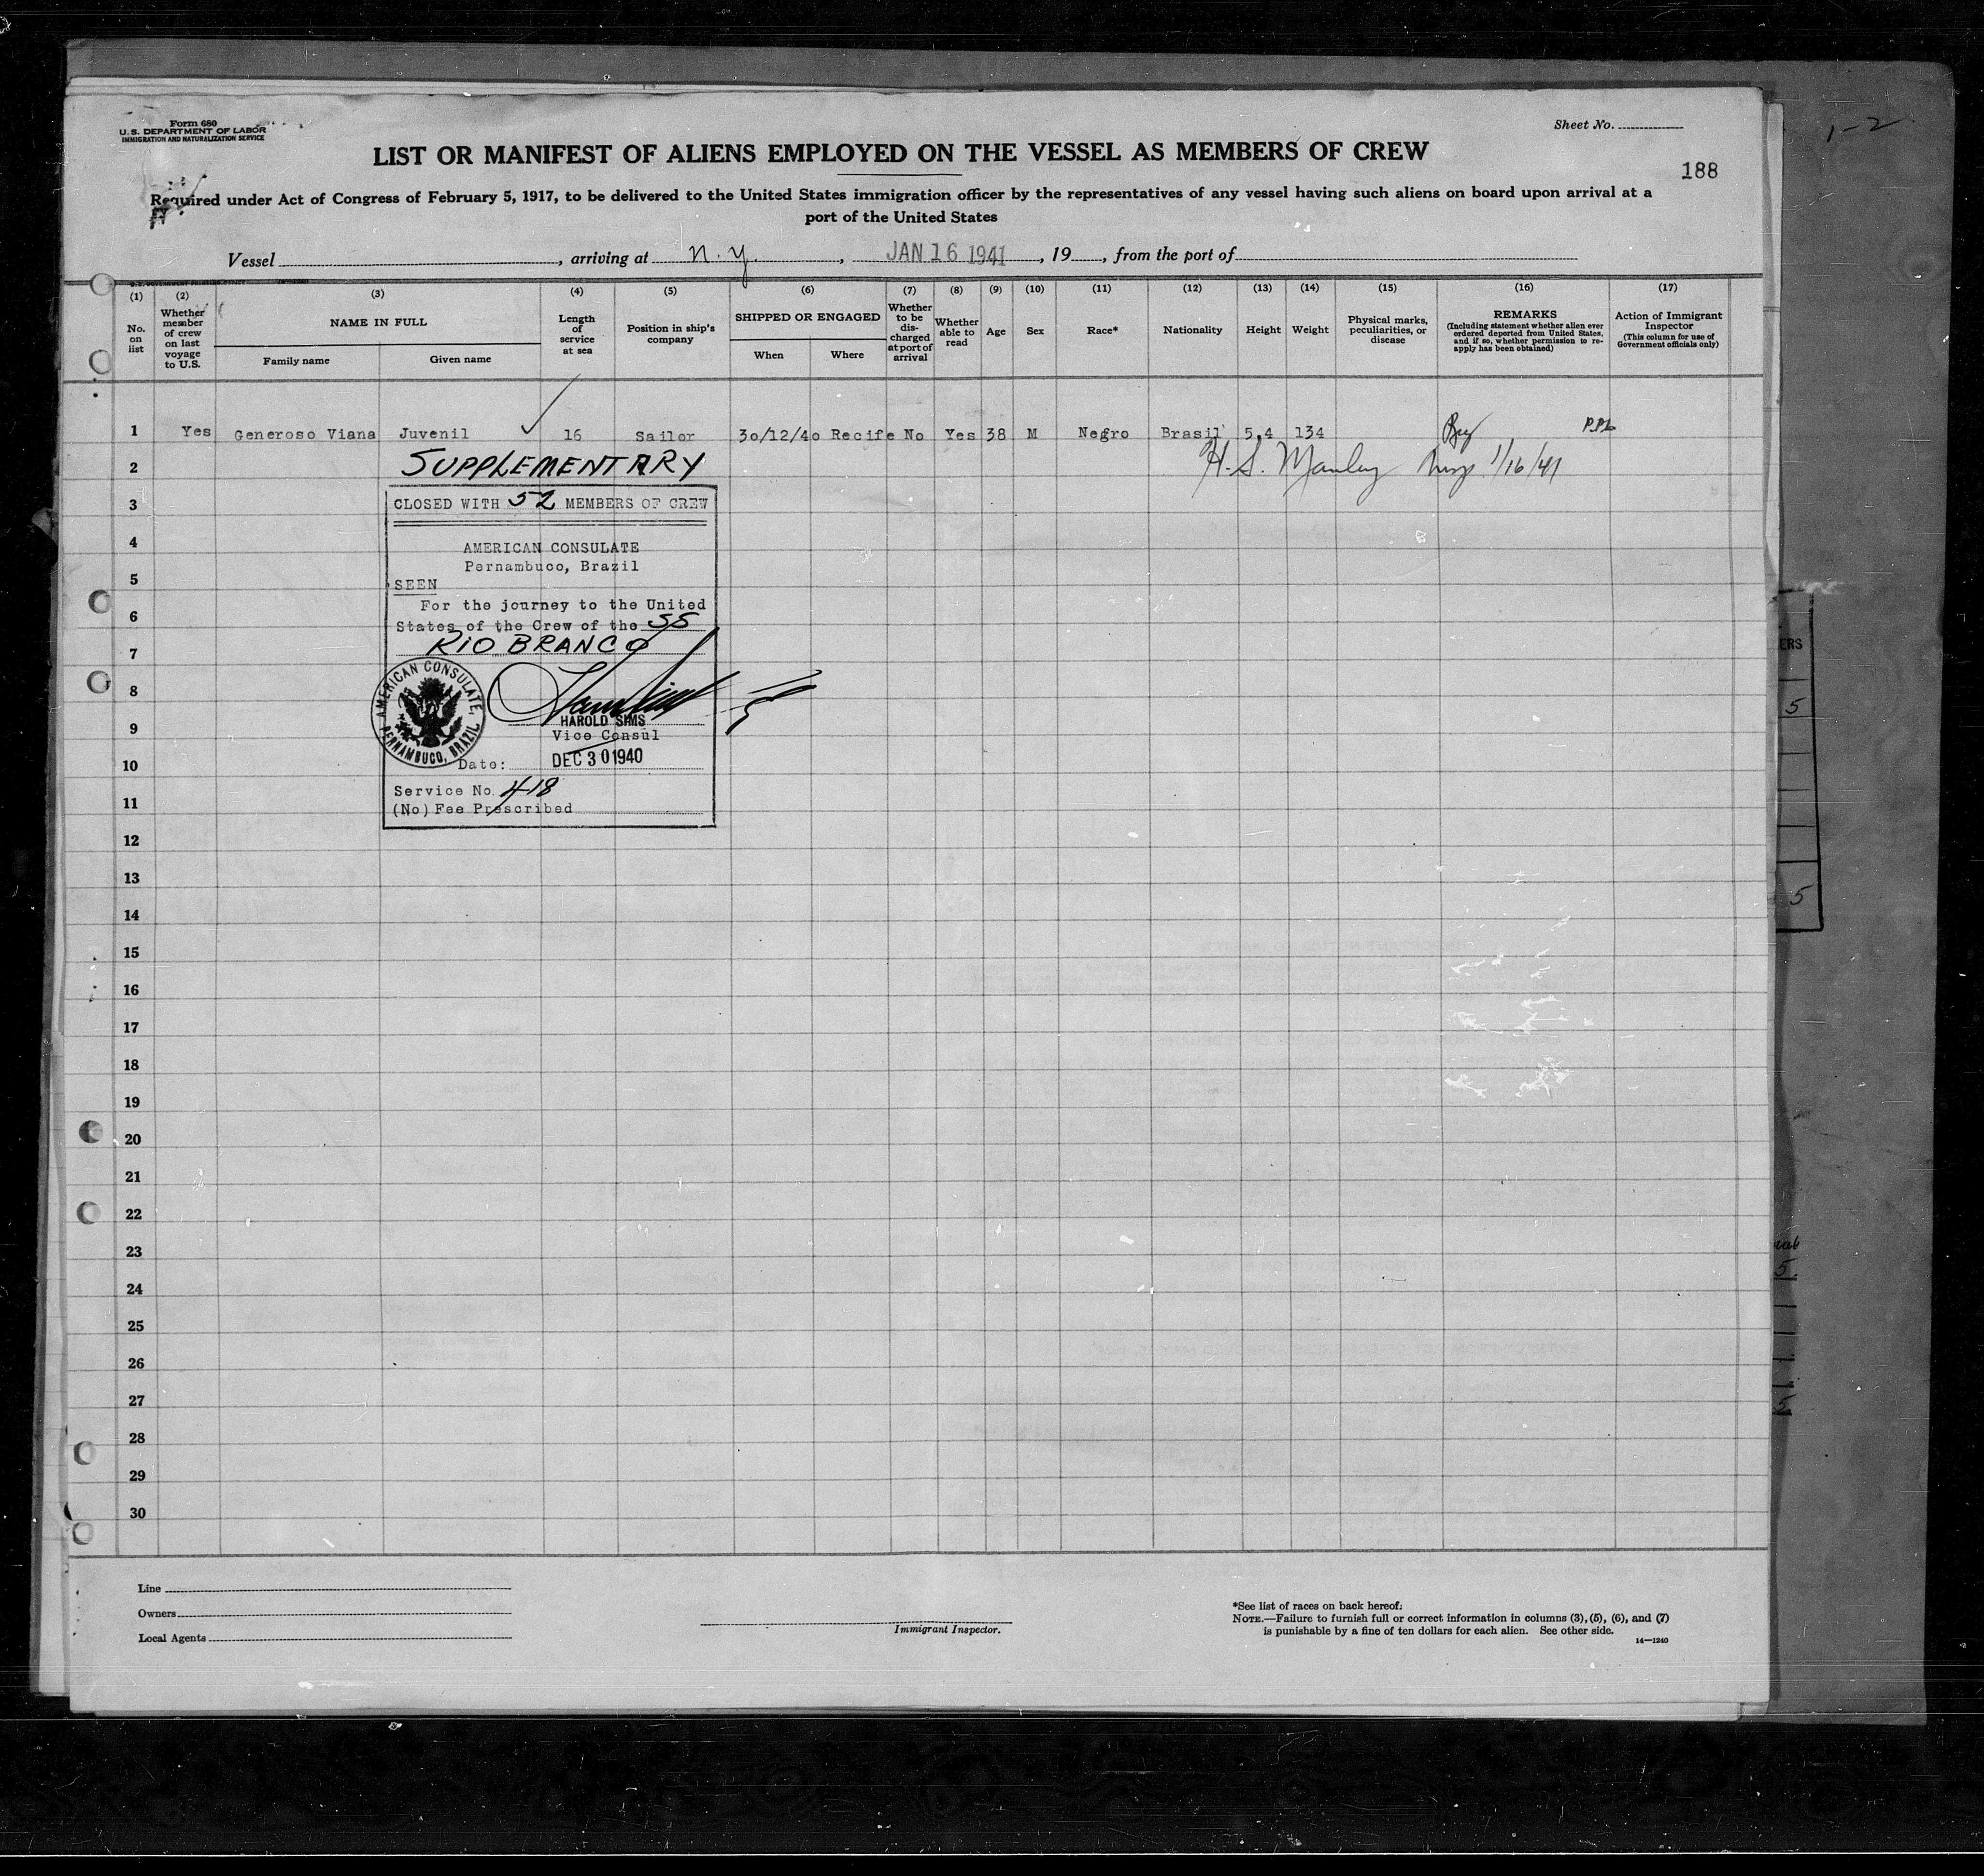 Form 680
U. S. DEPARTMENT OF LABOR
IMMIGRATION AND NATURALIZATION SERVICE
Sheet No.
1-2
LIST OR MANIFEST OF ALIENS EMPLOYED ON THE VESSEL AS MEMBERS OF CREW
188
Required under Act of Congress of February 5, 1917, to be delivered to the United States immigration officer by the representatives of any vessel having such aliens on board upon arrival at a
port of the United States
Vessel , arriving at N. Y. , JAN 16 1941 , 19 , from the port of
(1) (2) (3) (4) (5) (6) (7) (8) (9) (10) (11) (12) (13) (14) (15) (16) (17)
No. on list
Whether member of crew on last voyage to U.S.
NAME IN FULL
Family name
Given name
Length of service at sea
Position in ship's company
SHIPPED OR ENGAGED
When
Where
Whether to be discharged at port of arrival
Whether able to read
Age
Sex
Race*
Nationality
Height
Weight
Physical marks, peculiarities, or disease
REMARKS
(Including statement whether alien ever ordered deported from United States, and if so, whether permission to reapply has been obtained)
Action of Immigrant Inspector
(This column for use of Government officials only)
1 Yes Generoso Viana Juvenil 16 Sailor 30/12/40 Recife No Yes 38 M Negro Brasil 5,4 134
2 SUPPLEMENTARY H. S. Manley Insp. 1/16/41
3 CLOSED WITH 52 MEMBERS OF CREW
4 AMERICAN CONSULATE
Pernambuco, Brazil
5 SEEN
For the journey to the United
6 States of the Crew of the SS
7 RIO BRANCO
8
AMERICAN CONSULATE, PERNAMBUCO, BRAZIL
HAROLD SIMS
9 Vice Consul
10 Date: DEC 30 1940
11 Service No. 418
(No) Fee Prescribed
12
13
14
15
16
17
18
19
20
21
22
23
24
25
26
27
28
29
30
ERS
5
5
Line
Owners
Local Agents
Immigrant Inspector.
*See list of races on back hereof.
NOTE.—Failure to furnish full or correct information in columns (3), (5), (6), and (7)
is punishable by a fine of ten dollars for each alien. See other side.
14—1240